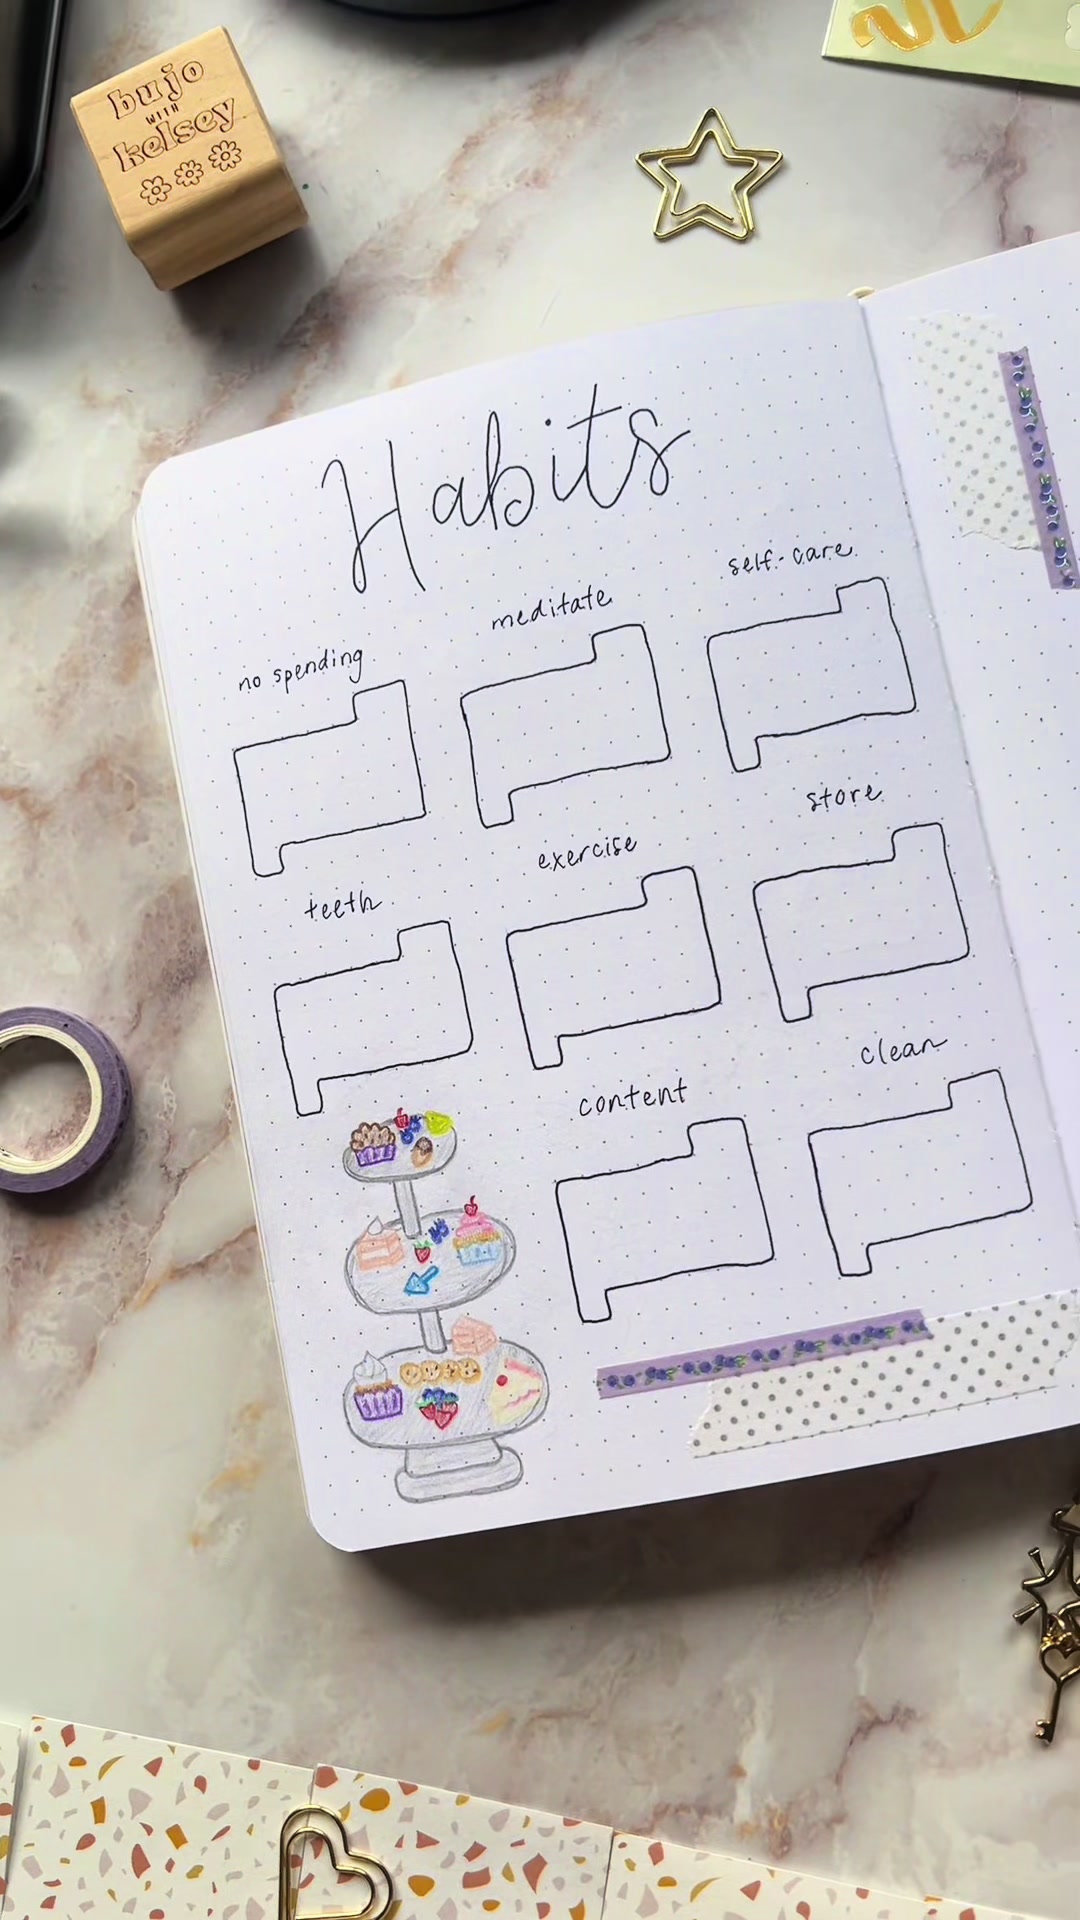 bujo
WITH
kelsey
Habits
no spending
meditate
self-care
teeth
exercise
store
content
clean